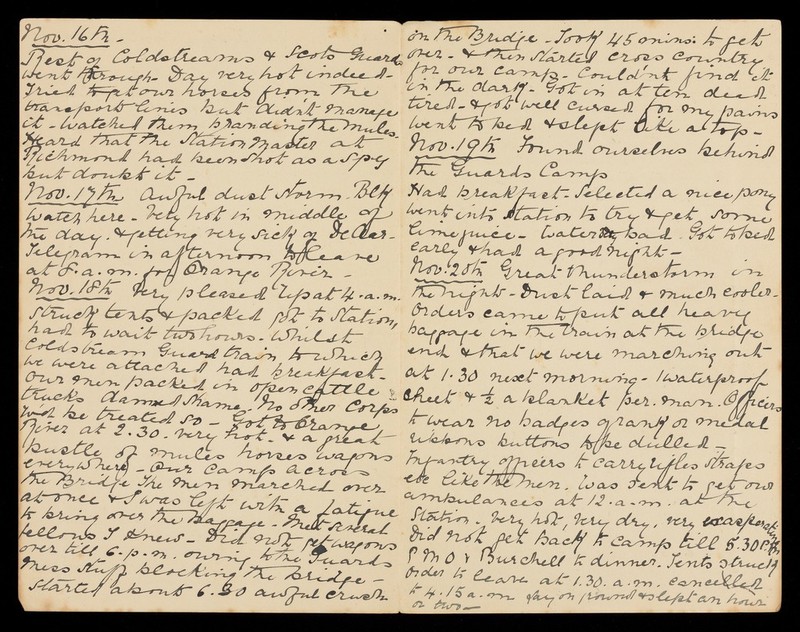 Nov. 16th -
Rest of Coldstreams & Scots Guards
went through - Day very hot indeed -
Tried to get our horses from the
transport lines but didn't manage
it - watched them branding the mules.
Heard that the Station Master at
Richmond had been shot as a spy
but doubt it -
Nov. 17th Awful dust storm. Blk
Watch here - Very hot in middle of
the day. & getting very sick of De Aar -
Telegram in afternoon to leave
at 8. a.m. for Orange River -
Nov. 18th Very pleased. Up at 4. a.m.
struck tents & packed got to Station,
had to wait two hours. Whilst
Coldstream Guard train, to which
we were attached had breakfast -
Our men packed in open cattle
trucks damned shame. No other Corps
wd be treated so - Got to Orange
River at 2.30. very hot - & a great
bustle of mules horses wagons
everywhere - Our camp across
the Bridge The men marched over
at once & I was left with a fatigue
to bring over the baggage - Met several
fellows I knew - Did not get wagons
over till 6. p.m. owing to the Guards
mess stuff blocking the bridge -
Started about 6.30 awful crush
on the Bridge - Took 45 mins: to get
over - & then started cross country
for our camp - Couldn't find it
in the dark - Got in at ten dead
tired - & got well cursed for my pains
went to bed & slept like a top -
Nov. 19th Found ourselves behind
the Guards Camp
Had breakfast - Selected a nice pony
went into Station to try & get some
lime juice - Water bad. Got to bed
early & had a good night -
Nov: 20th Great thunderstorm in
the night - Dust laid & much cooler -
Orders came to put all heavy
baggage in the train at the bridge
end & that we were marching out
at 1.30 next morning - 1 waterproof
sheet & ½ a blanket per. man. Officers
to wear no badges of rank or medal
ribbons buttons to be dulled -
Infantry officers to carry rifles straps
etc like the men. Was sent to get our
ambulances at 12. a.m. at the
Station. Very hot, very dry, very exasperating
Did not get back to camp till 5.30 P.M.
P M O & Burchell to dinner. Tents struck
Order to leave at 1.30. a.m. cancelled
to 4.15 a.m lay on ground & slept an hour
or two -